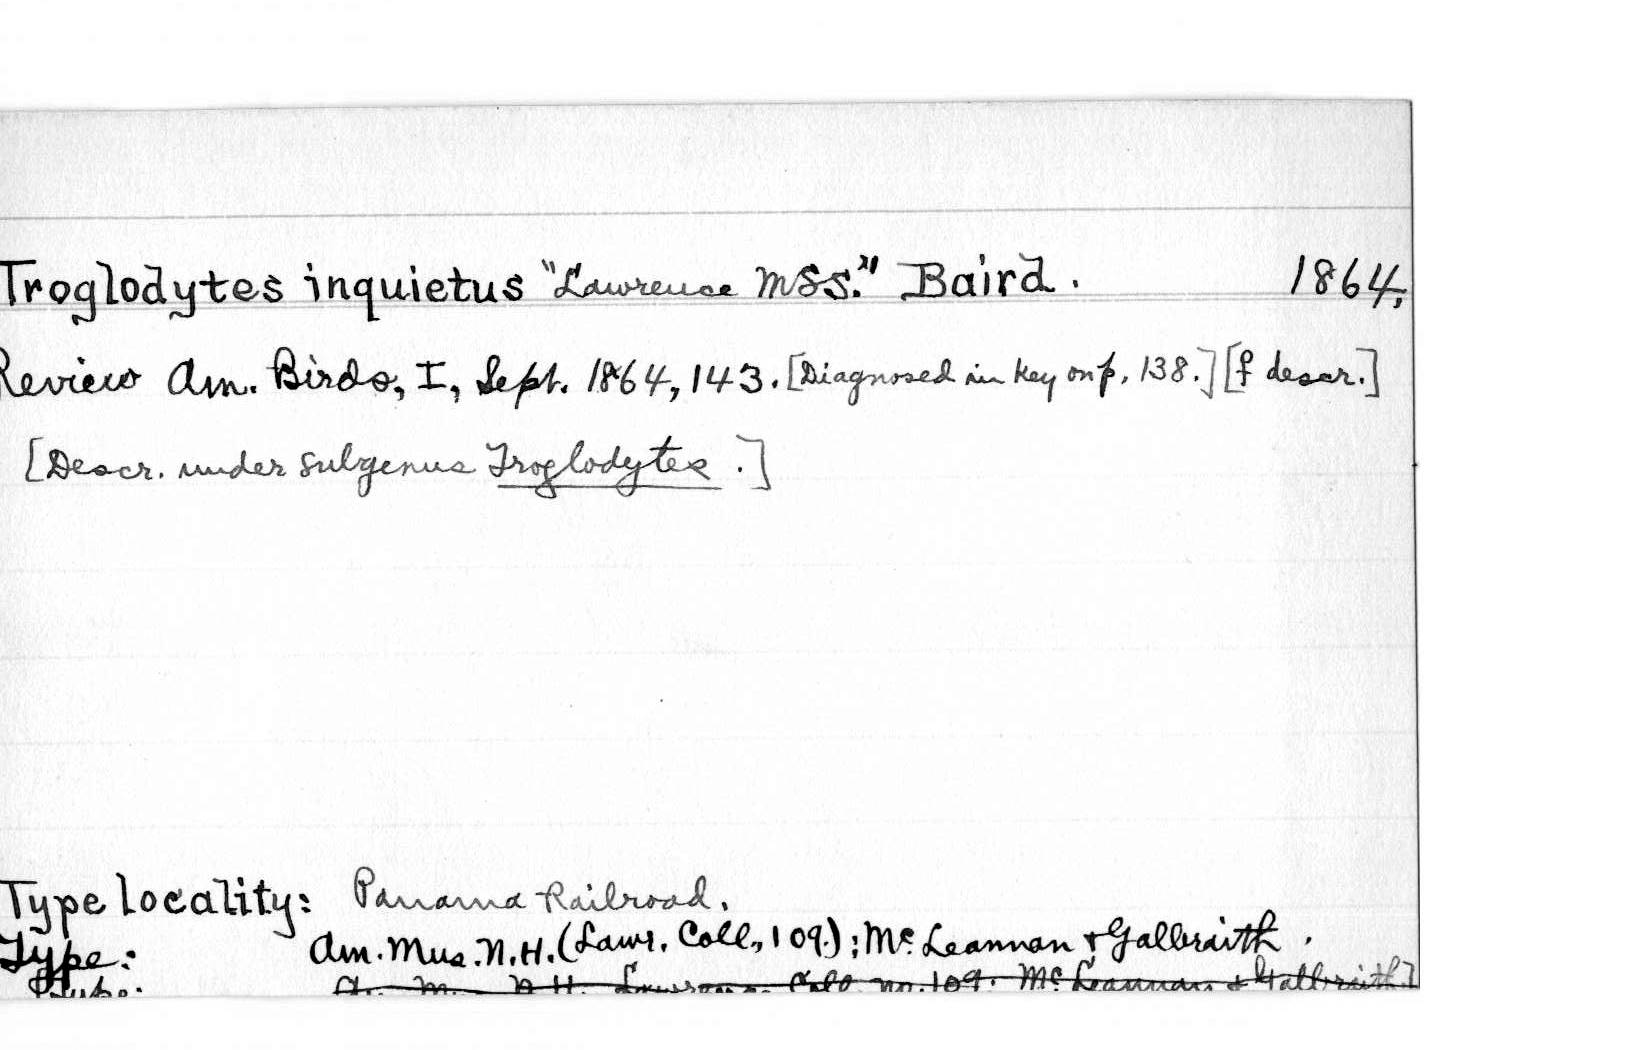 Troglodytes inquietus "Lawrence MSS." Baird. 1864.
Review Am. Birds, I, Sept. 1864, 143. [Diagnosed in key on p. 138.] [♀ descr.]
[Descr. under subgenus Troglodytes.]
Type locality: Panama Railroad.
Type: Am. Mus. N.H. (Lawr. Coll., 109.); Mc Leannan & Galbraith.
Type: Am. Mus. N.H. Lawrence Coll. no. 109. Mc Leannan & Galbraith]